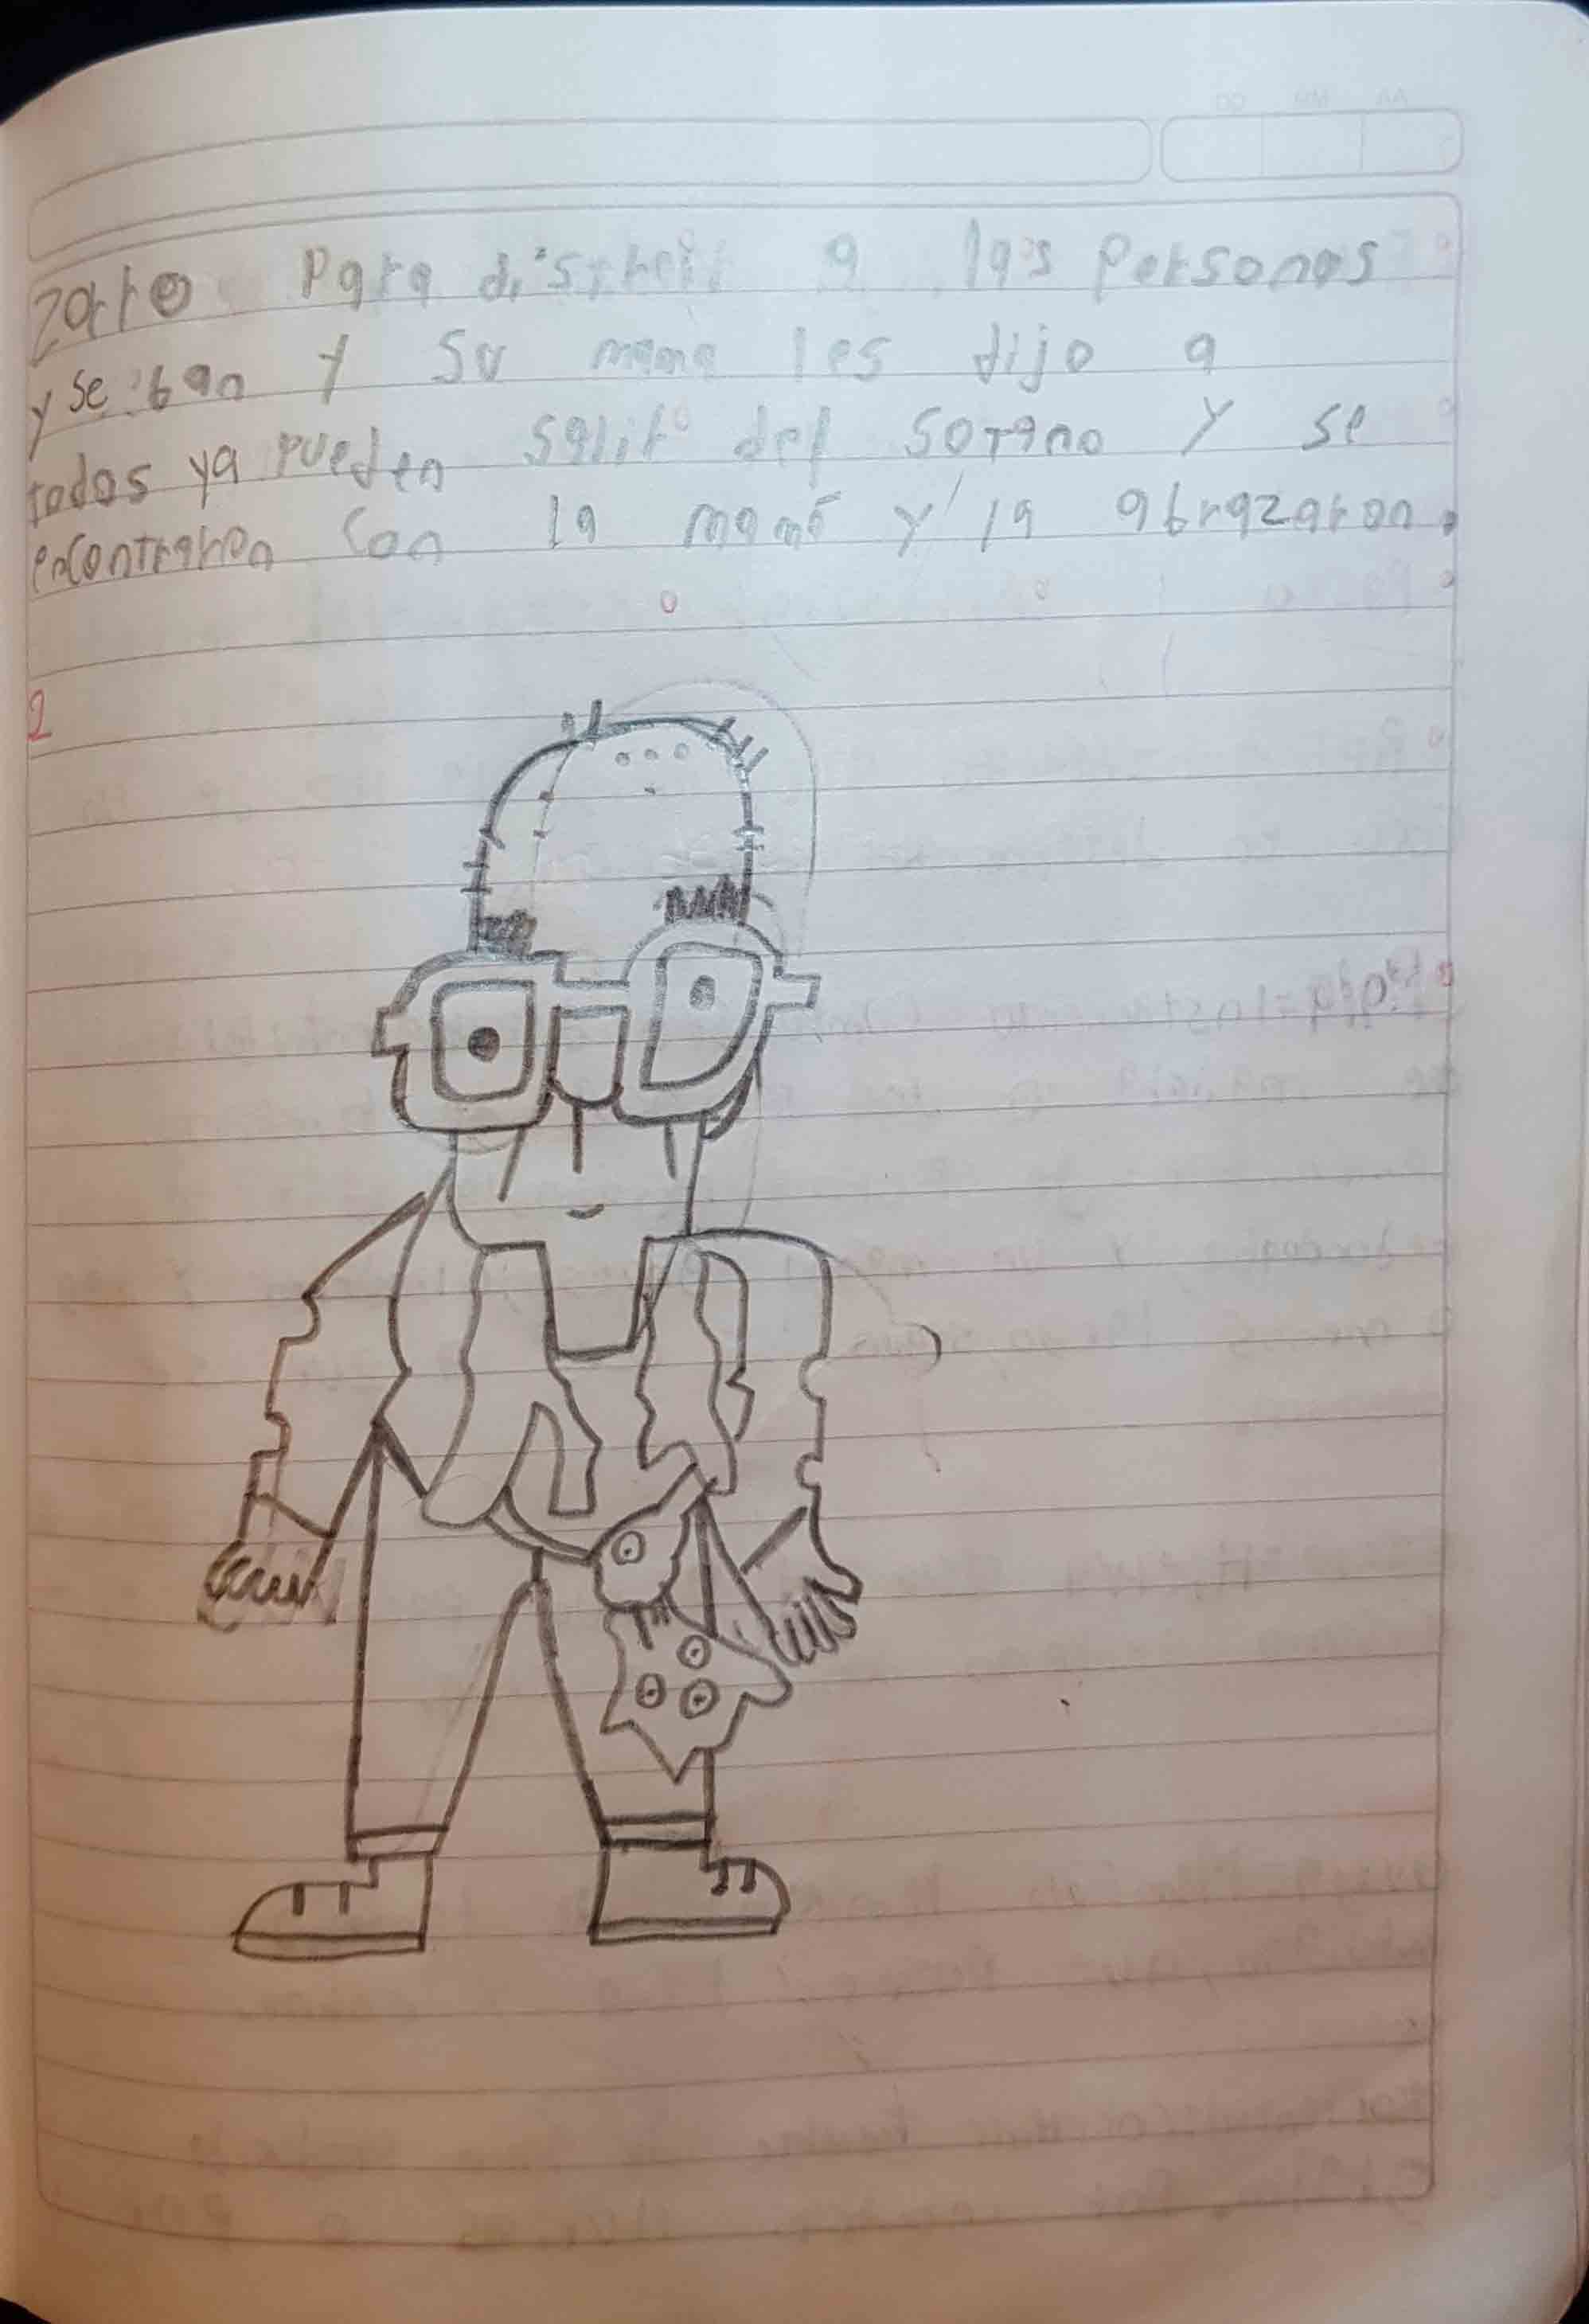 zorro para distraii a las personas
y se iban y su mama les dijo a
todos ya pueden salir del sotano y se
encontraron con la mamá y la abrazaron.
2